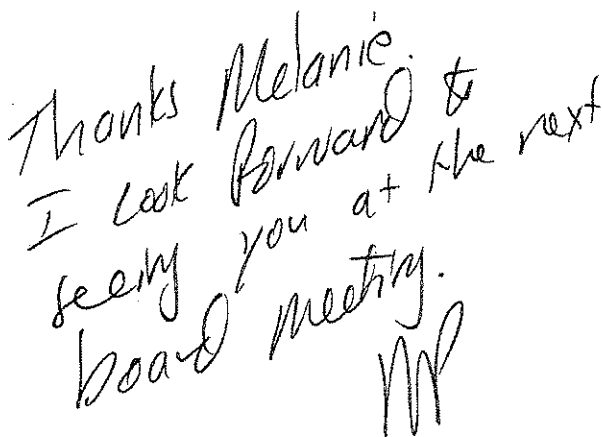 Thanks Melanie.
I look forward to
seeing you at the next
board meeting.